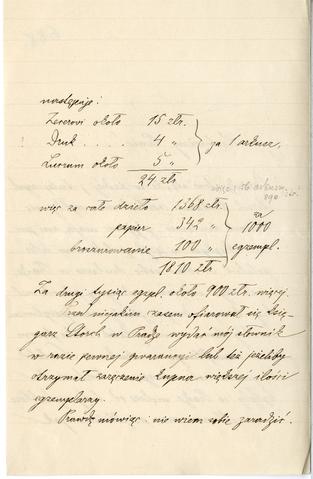 następuje:
Zecerowi około 15 złr.
Druk . . . . 4 „ } za 1 arkusz.
Lucrum około 5 „
24 złr
więc za całe dzieło 1568 złr.
papier 342 „ } za 1000 egzempl.
broszurowanie 100 „
1810 złr
Za drugi tysiąc egzpl. około 900 złr. więcej.
Przed niejakim czasem ofiarował się księ-
garz Storch w Pradze wydać mój słownik
w razie pewnej gwarancyi lub też jeżeliby
otrzymał zaręczenie kupna większej ilości
egzemplarzy.
Prawdę mówiąc: nie wiem sobie zaradzić.